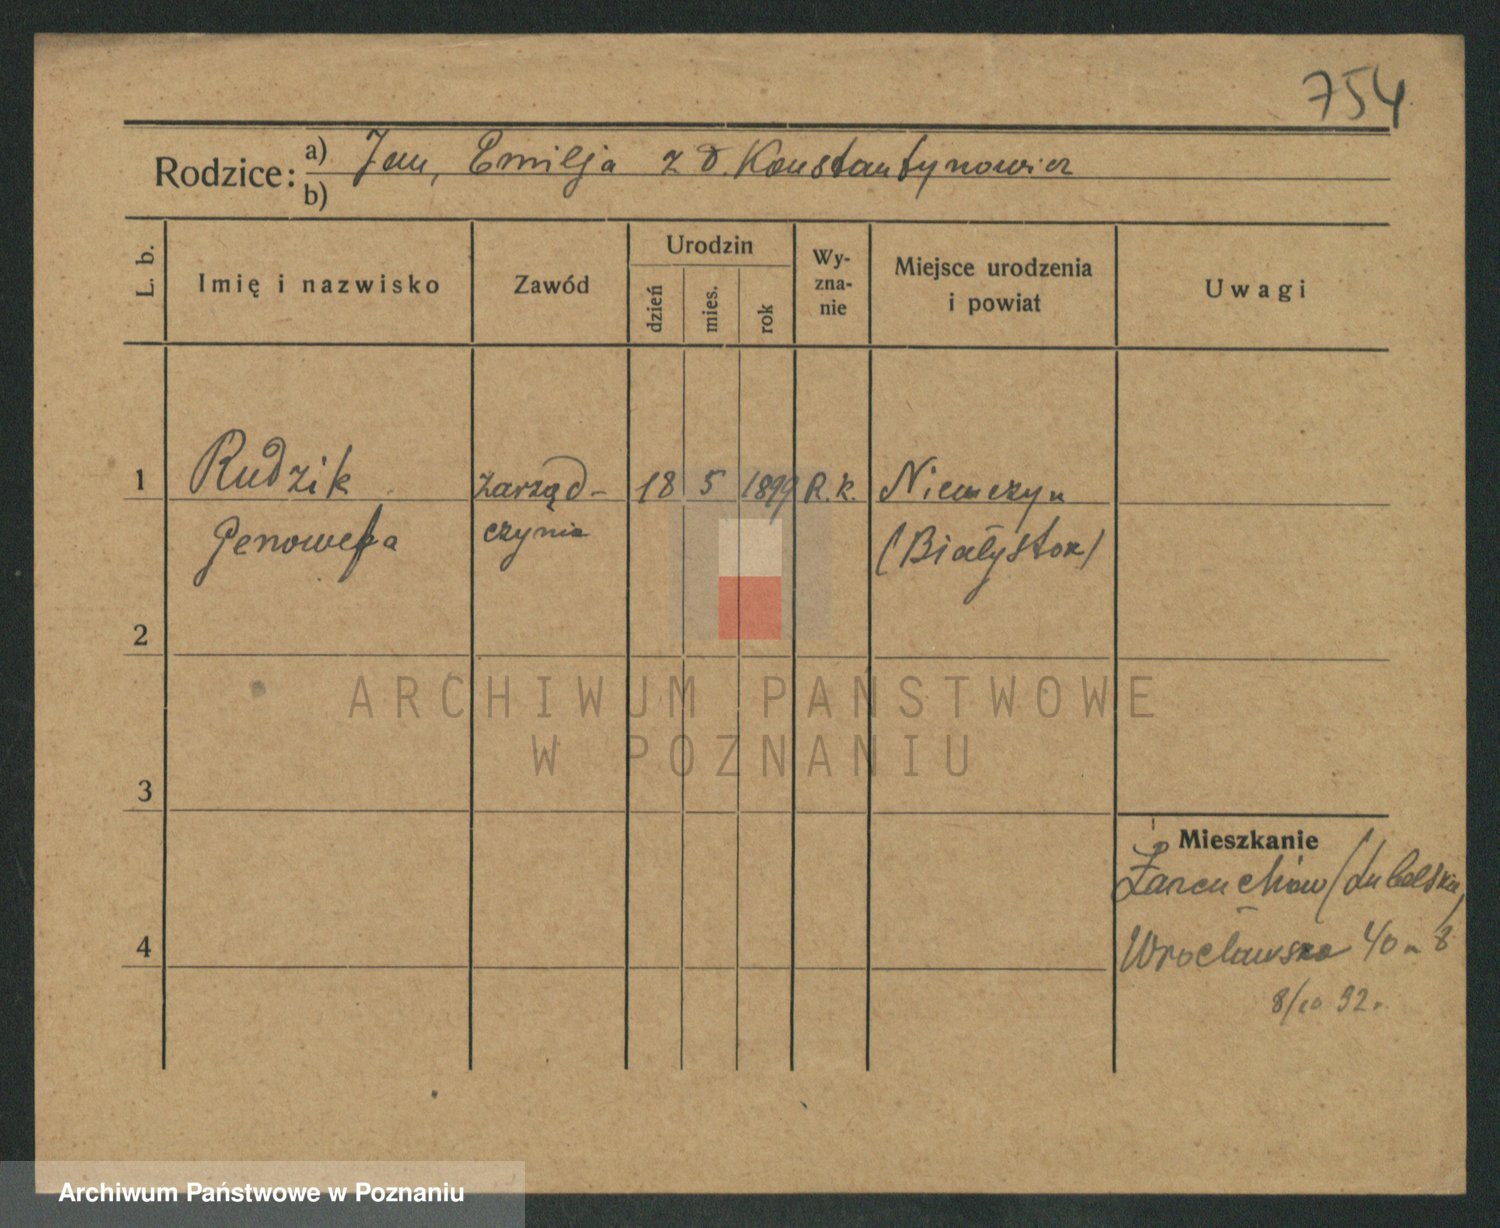 754
Rodzice: a) Jan, Emilja z d. Konstantynowicz
b)
L. b.
Imię i nazwisko
Zawód
Urodzin
dzień
mies.
rok
Wy-
zna-
nie
Miejsce urodzenia
i powiat
Uwagi
1 Rudzik zarząd- 18 5 1899 R.k. Niemczyn
Genowefa czynia (Białystok)
2
ARCHIWUM PAŃSTWOWE
W POZNANIU
3
Mieszkanie
(Lubelskie)
4
Wrocławska 40 m 8
8/10 32.
Archiwum Państwowe w Poznaniu